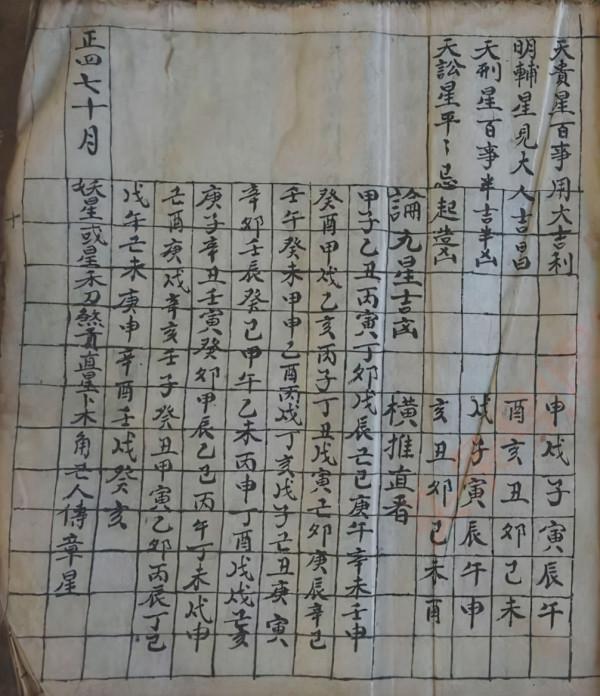 天貴星百事用大吉利 申戌子寅辰午
明輔星見大人吉昌 酉亥丑卯巳未
天刑星百事半吉半凶 戌子寅辰午申
天訟星平〻忌起凶 亥丑卯巳未酉
論九星吉凶 橫推直看
甲子乙丑丙寅丁卯戊辰己巳庚午辛未壬申
癸酉甲戌乙亥丙子丁丑戊寅己卯庚辰辛巳
壬午癸未甲申乙酉丙戌丁亥戊子己丑庚寅
辛卯壬辰癸巳甲午乙未丙申丁酉戊戌己亥
庚子辛丑壬寅癸卯甲辰乙巳丙午丁未戊申
己酉庚戌辛亥壬子癸丑甲寅乙卯丙辰丁巳
戊午己未庚申辛酉壬戌癸亥
正四七十月
妖星或星禾刀煞貢直星卜木角己人傳章星